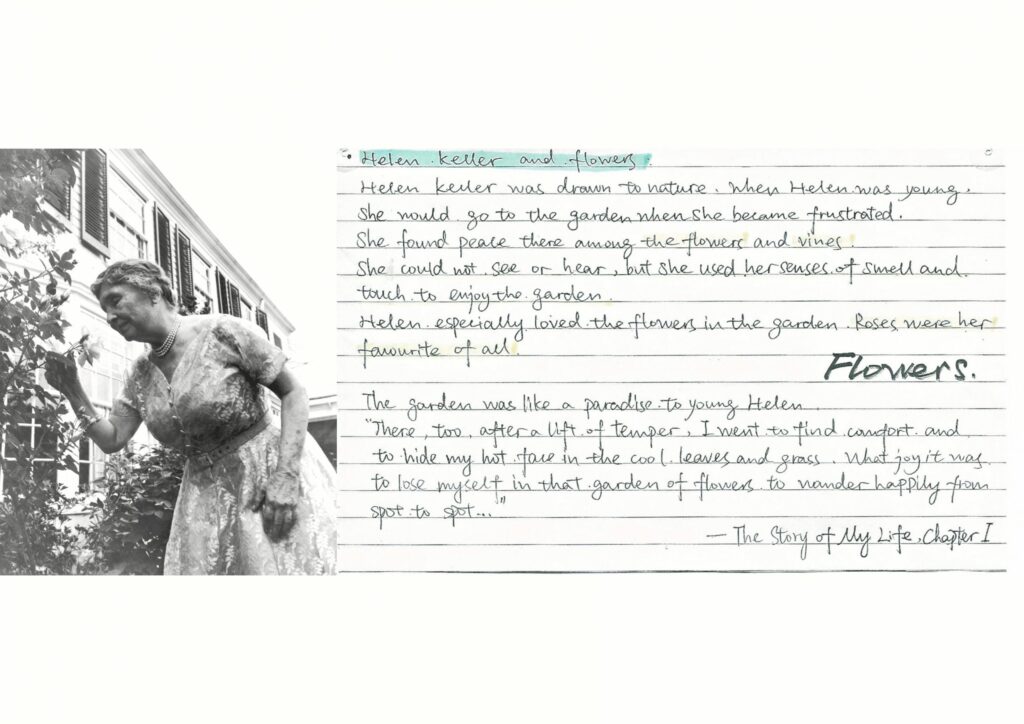 Helen Keller and flowers.
Helen Keller was drawn to nature. When Helen was young,
she would go to the garden when she became frustrated.
She found peace there among the flowers and vines.
She could not see or hear, but she used her senses of smell and
touch to enjoy the garden.
Helen especially loved the flowers in the garden. Roses were her
favourite of all.
Flowers.
The garden was like a paradise to young Helen.
"There, too, after a lift of temper, I went to find comfort and
to hide my hot face in the cool leaves and grass. What joy it was
to lose myself in that garden of flowers to wander happily from
spot to spot..."
— The Story of My Life, Chapter I